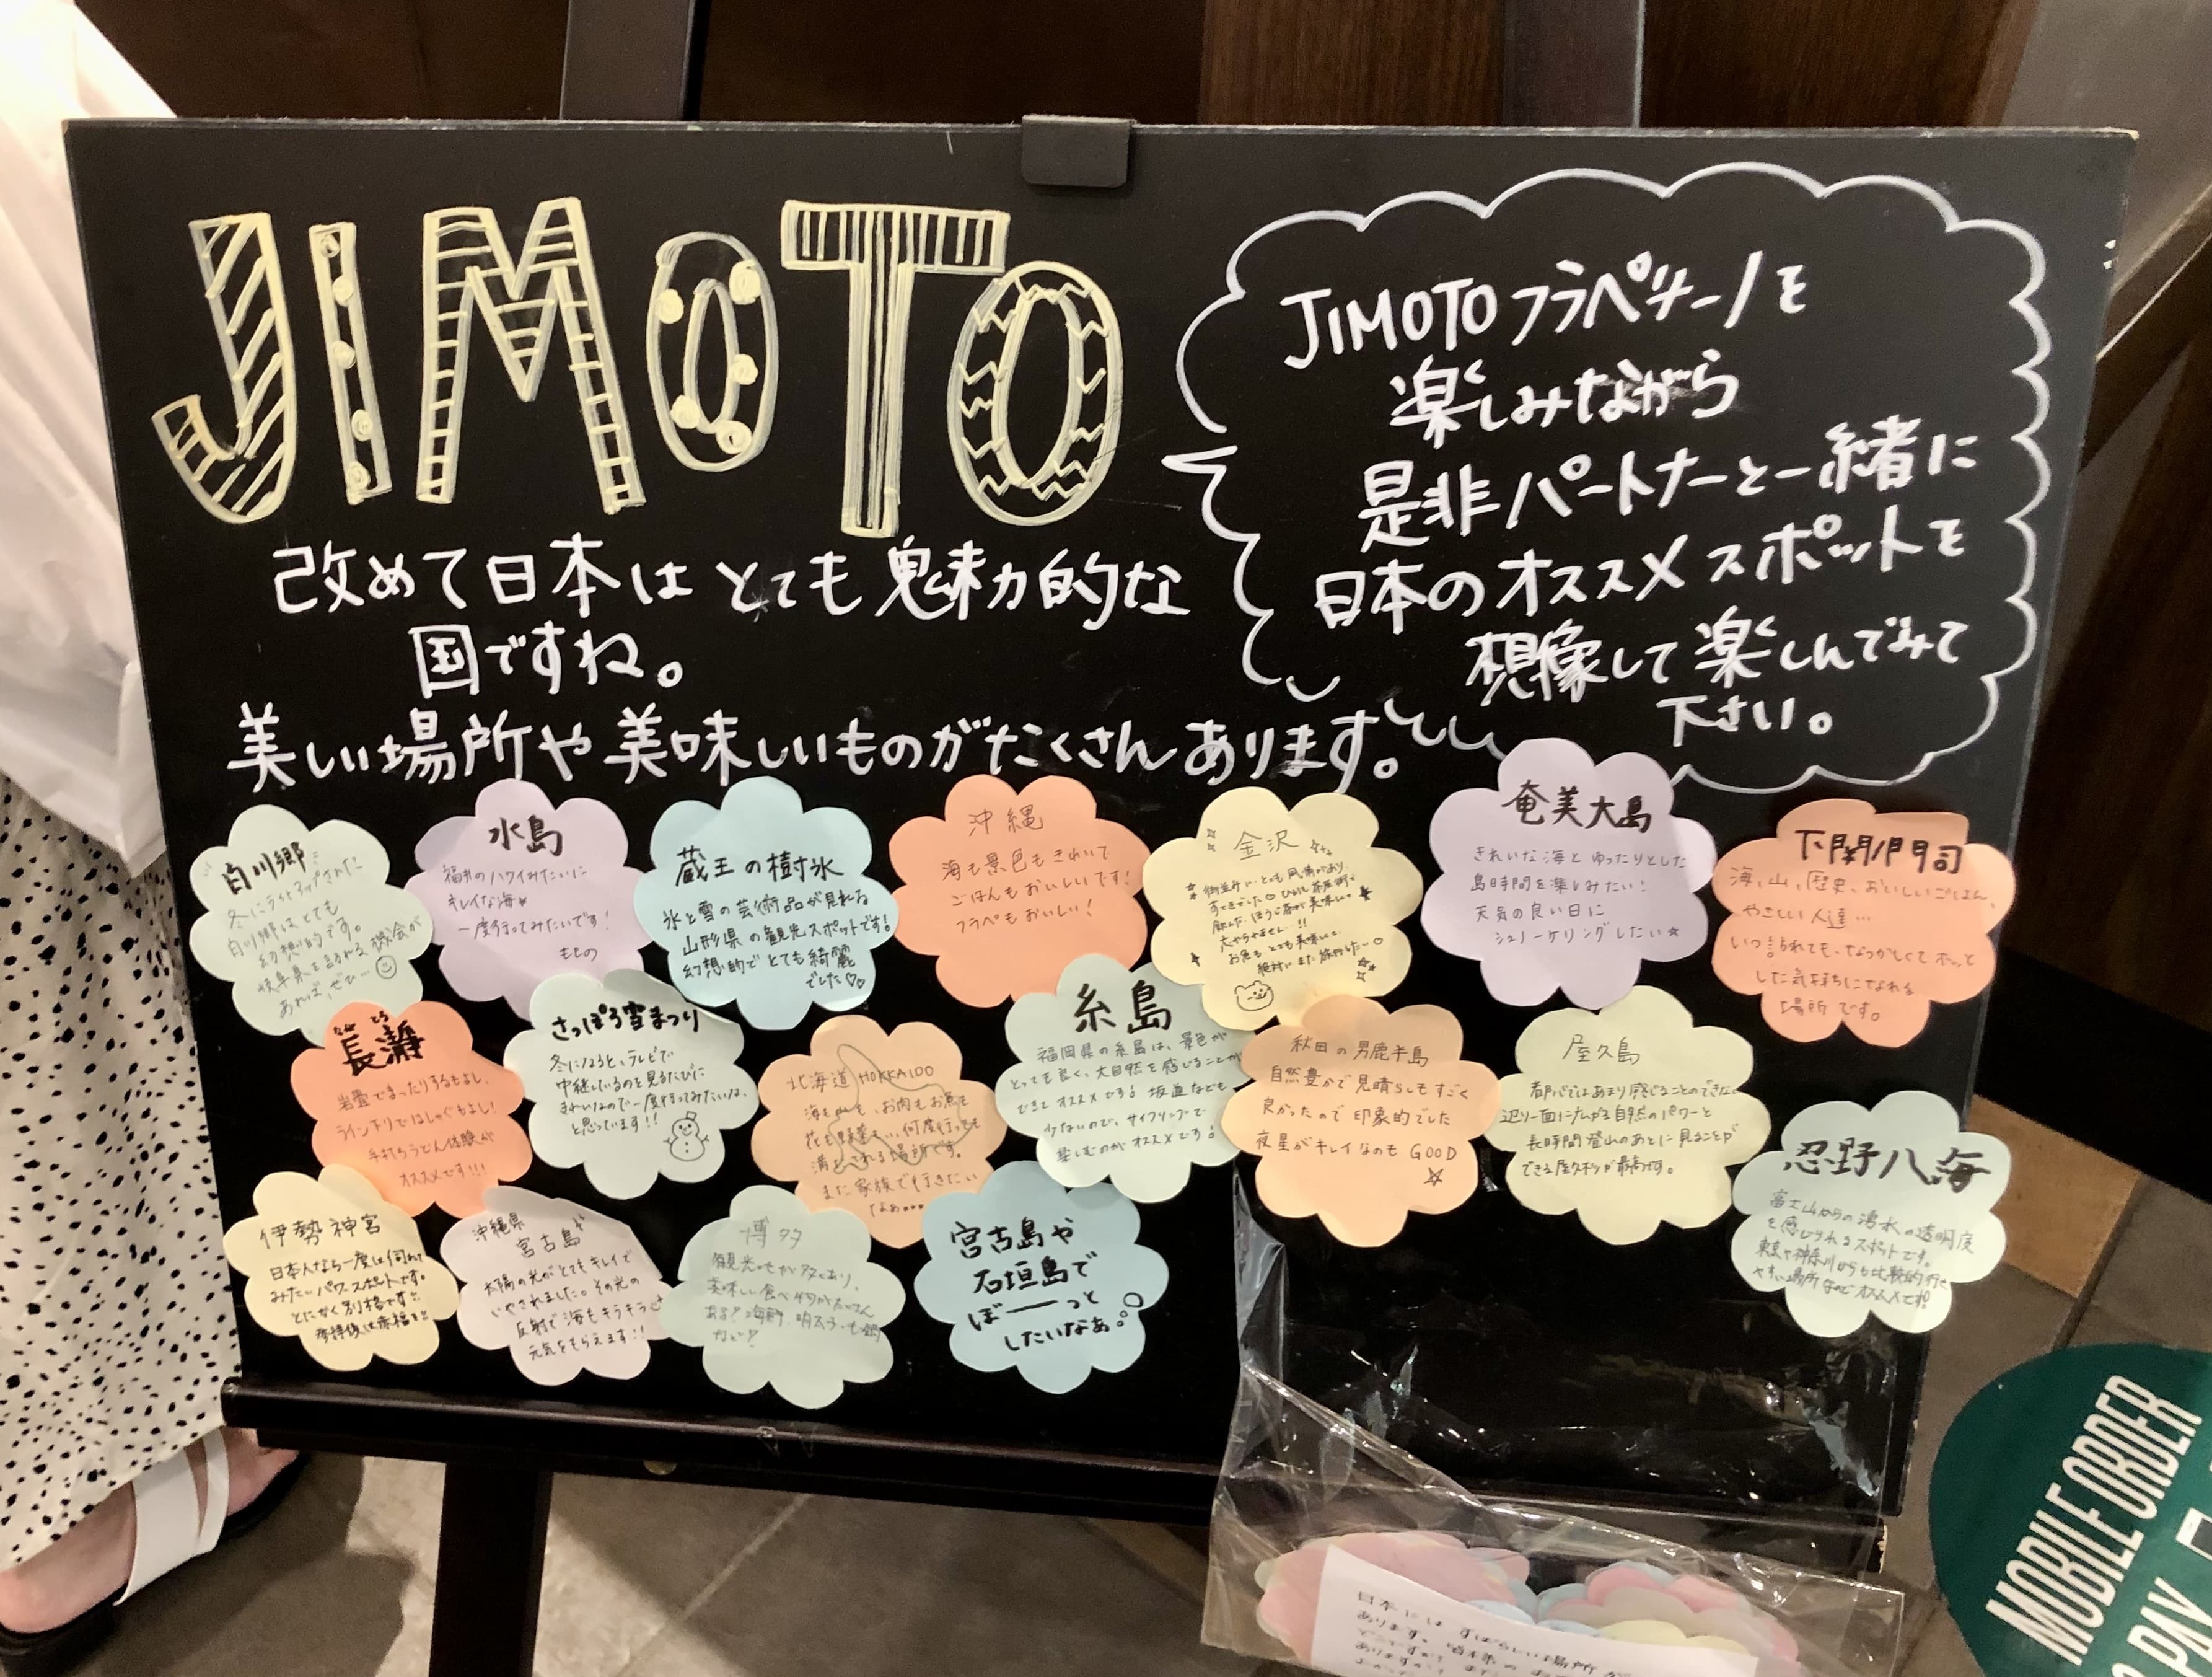 JIMOTO
改めて日本はとても魅力的な
国ですね。
美しい場所や美味しいものがたくさんあります。
JIMOTOフラペチーノを
楽しみながら
是非パートナーと一緒に
日本のオススメスポットを
想像して楽しんでみて
下さい。
白川郷
冬にライトアップされた
白川郷はとても
幻想的です。
岐阜県を訪れる機会が
あれば、ぜひ…
水島
福井のハワイみたいに
キレイな海
一度行ってみたいです!
蔵王の樹氷
氷と雪の芸術品が見れる
山形県の観光スポットです!
幻想的でとても綺麗
でした♡♡
沖縄
海も景色もきれいで
ごはんもおいしいです!
フラペもおいしい!
金沢
街並みがとても風情があり、
すてきでした ひがし茶屋町で
飲んだほうじ茶が美味しくて
お魚もとても美味しく
絶対にまた旅行したい
奄美大島
きれいな海とゆったりとした
島時間を楽しみたい!
天気の良い日に
シュノーケリングしたい☆
下関/門司
海、山、歴史、おいしいごはん、
やさしい人達…
いつ訪れても、なつかしくてホッと
した気持ちになれる
場所です。
長瀞
岩畳でまったりするもよし、
ライン下りではしゃぐもよし!
手打ちうどん体験が
オススメです!!!
さっぽろ雪まつり
冬になると、テレビで
中継しているのを見るたびに
きれいなので一度行ってみたいな、
と思っています!!
北海道 HOKKAIDO
海も山も、お肉もお魚も
花も野菜も…何度行っても
満たされる場所です。
また家族で行きたい
なぁ…
糸島
福岡県の糸島は、景色が
とっても良く、大自然を感じることが
できてオススメです! 坂道なども
少ないので、サイクリングで
楽しむのがオススメです!
秋田の男鹿半島
自然豊かで見晴らしもすごく
良かったので印象的でした
夜星がキレイなのもGOOD
☆
屋久島
都心ではあまり感じることのできない
辺り一面に広がる自然のパワーと
長時間登山のあとに見ることが
できる屋久杉が最高です。
忍野八海
富士山からの湧水の透明度
を感じられるスポットです。
東京や神奈川からも比較的行き
やすい場所なのでオススメです!
伊勢神宮
日本人なら一度は伺って
みたいパワースポットです。
とにかく別格です!!
参拝後は赤福を!!
沖縄県
宮古島
太陽の光がとてもキレイで
いやされました。その光の
反射で海もキラキラ
元気をもらえます!!
博多
観光地が多くあり、
美味しい食べ物がたくさん
ある? 海鮮、明太子、もつ鍋
など?
宮古島や
石垣島で
ぼーーっと
したいなぁ。
MOBILE ORDER
PAY